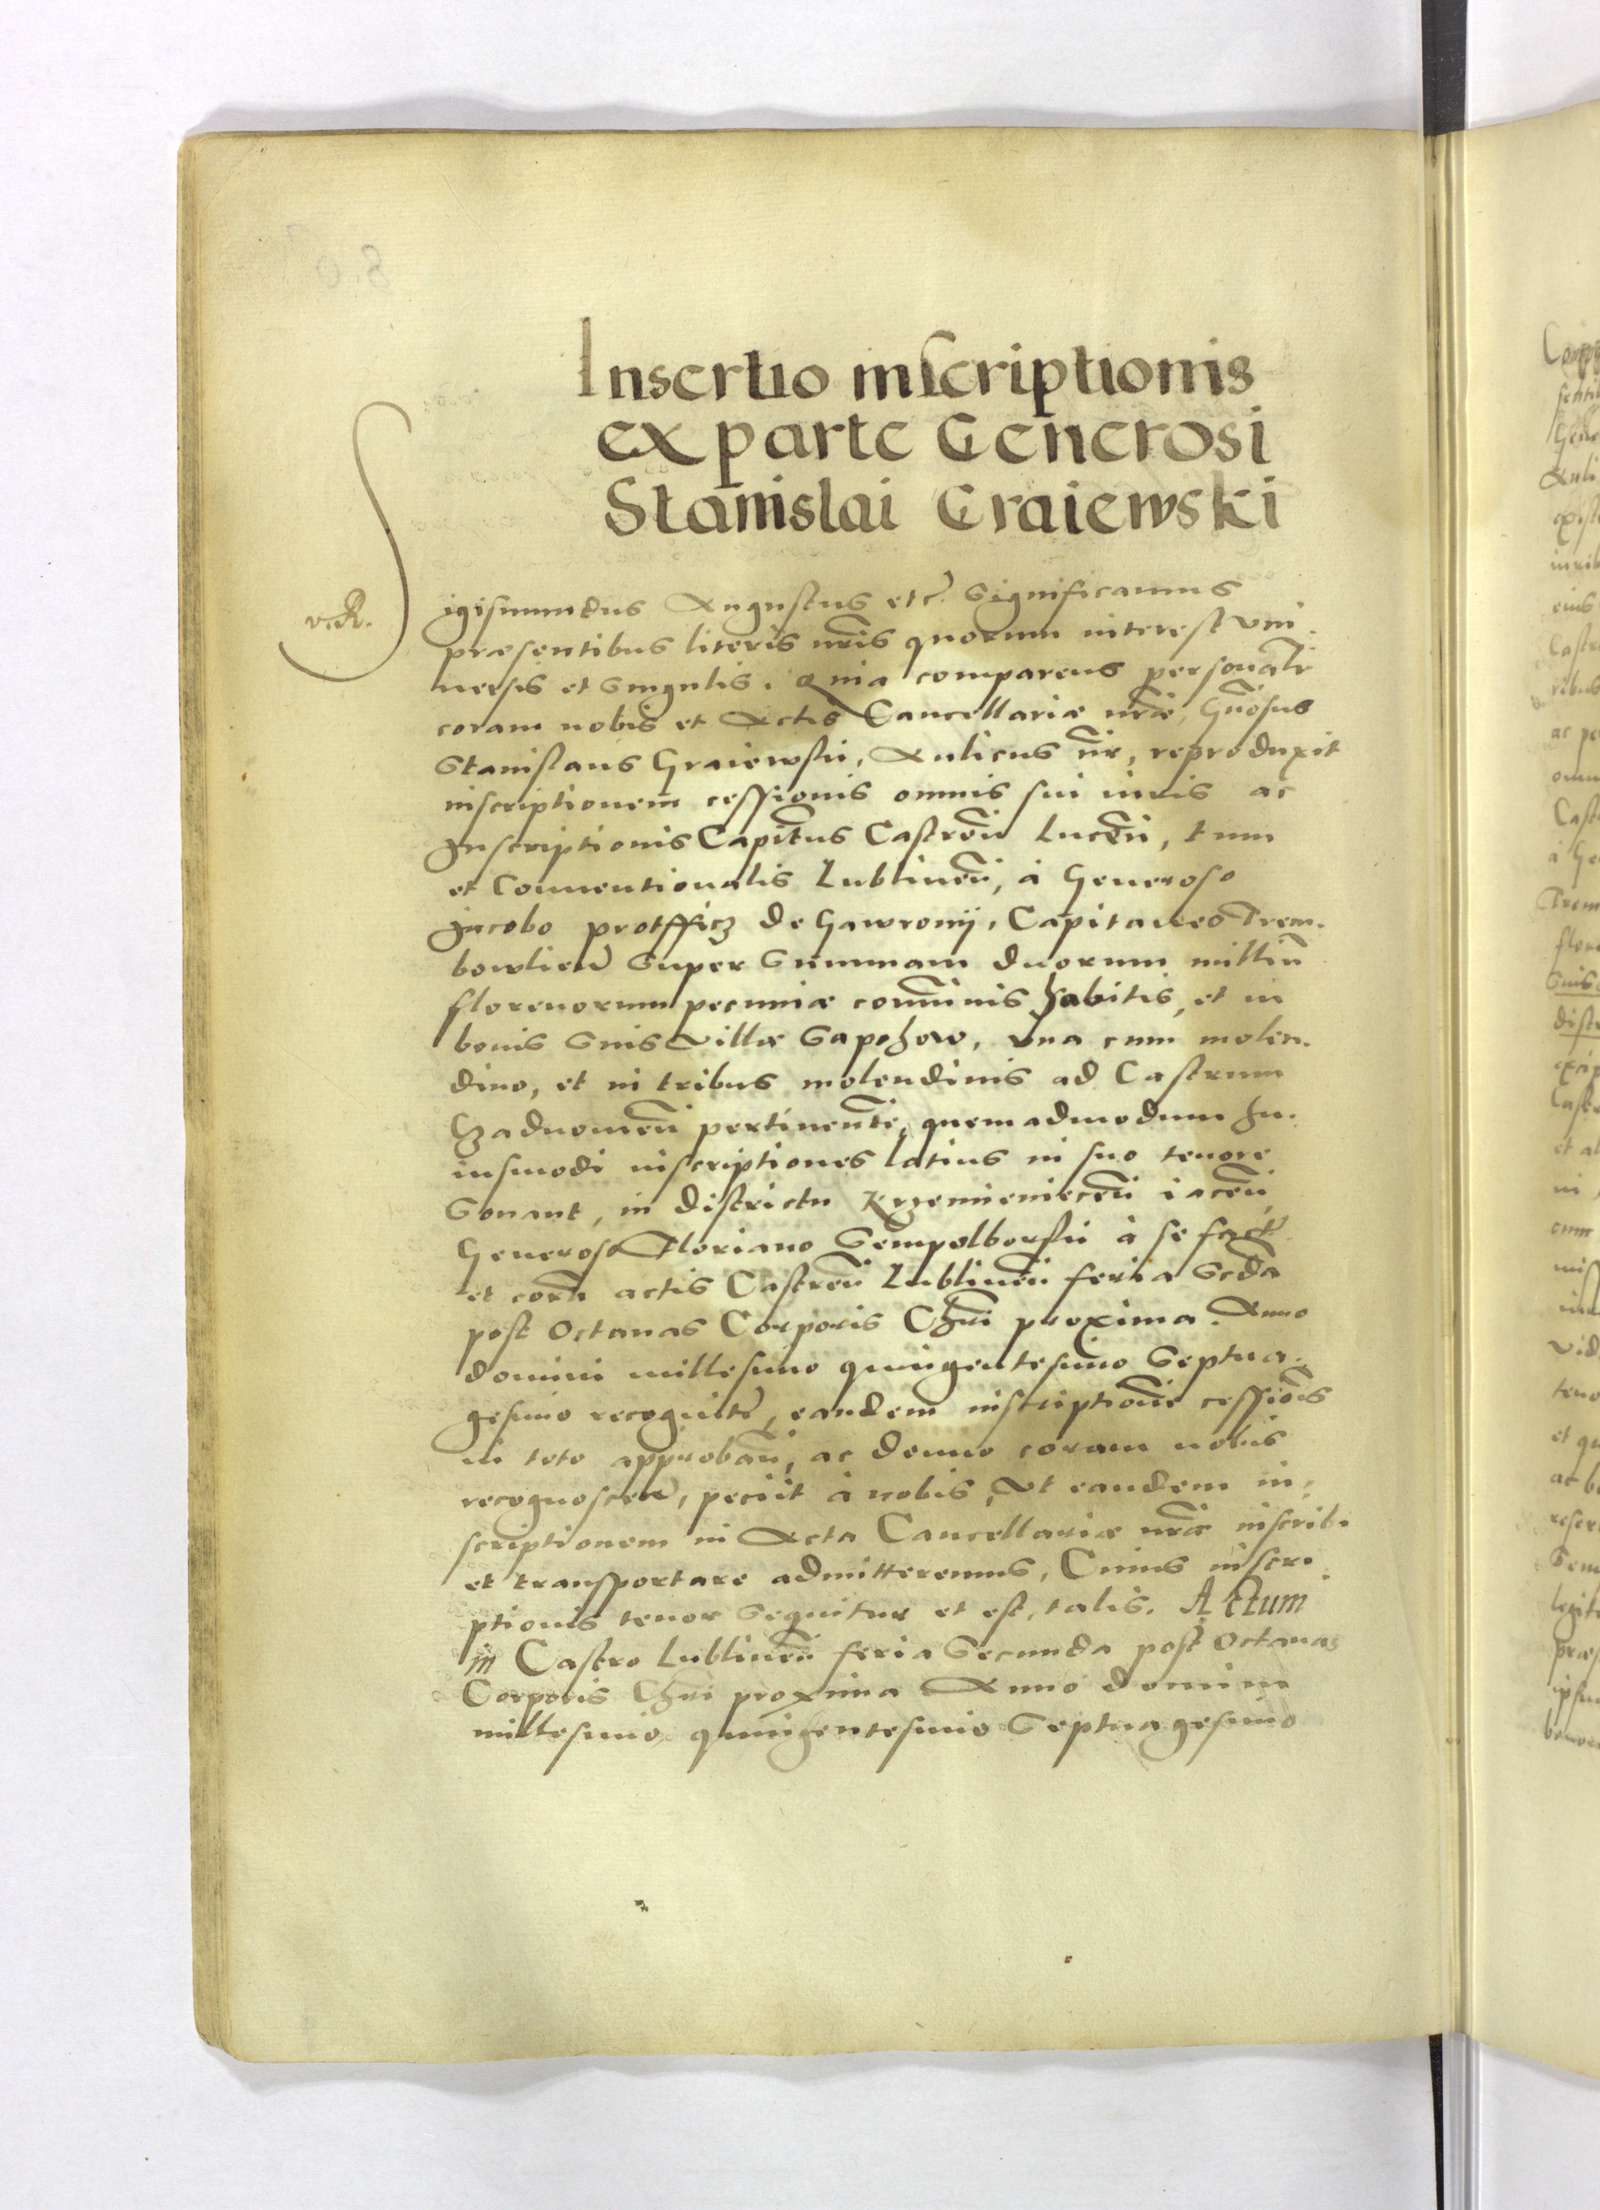 Insertio inscriptionis
ex parte Generosi
Stanislai Graiewski
v.R.
Sigismundus Augustus etc̃ Significamus
præsentibus literis nr̃is quorum interest vni
uersis et singulis. Quia comparens personalr̃
coram nobis et Actis Cancellariæ nr̃æ, Gñosus
Stanislaus Graiewski, Aulicus nr̃, reproduxit
inscriptionem cessionis omnis sui iuris ac
Inscriptionis Capit̃us Castreñ Luceñ, tum
et Conuentionalis Lublineñ, à Generoso
Jacobo de Gawronÿ, Capitaneo Trem.
bowlieñ Super Summam duorum milliũ
florenorum pecuniæ com̃unis habitis, et in
bonis suis villæ Sapohow, vna cum molen.
dino, et in tribus molendinis ad Castrum
pertineñte, quemadmodum hu.
iusmodi inscriptiones latius in suo tenore
Sonant, in districtu Krzemieniecẽn iaceñ,
Generoso Floriano Sempolborski à se fact̃
et corã actis Castreñ Lublineñ feria Sc̃da
post Octauas Corporis Chr̃i proxima. Anno
domini millesimo quingentesimo Septua.
gesimo recognite᷒, eandem inscriptionẽ cessiõis
in toto approbañ, ac denuo coram nobis
recognosceñ, petiit à nobis, Vt eandem in.
scriptionem in Acta Cancellariæ nr̃æ inscribi
et transportare admitteremus, Cuius inscri.
ptionis tenor Sequitur et est, talis. Actum
in Castro Lublineñ feria Secunda post Octauas
Corporis Chr̃i proxima Anno domini
millesimo quingentesimo Septuagesimo